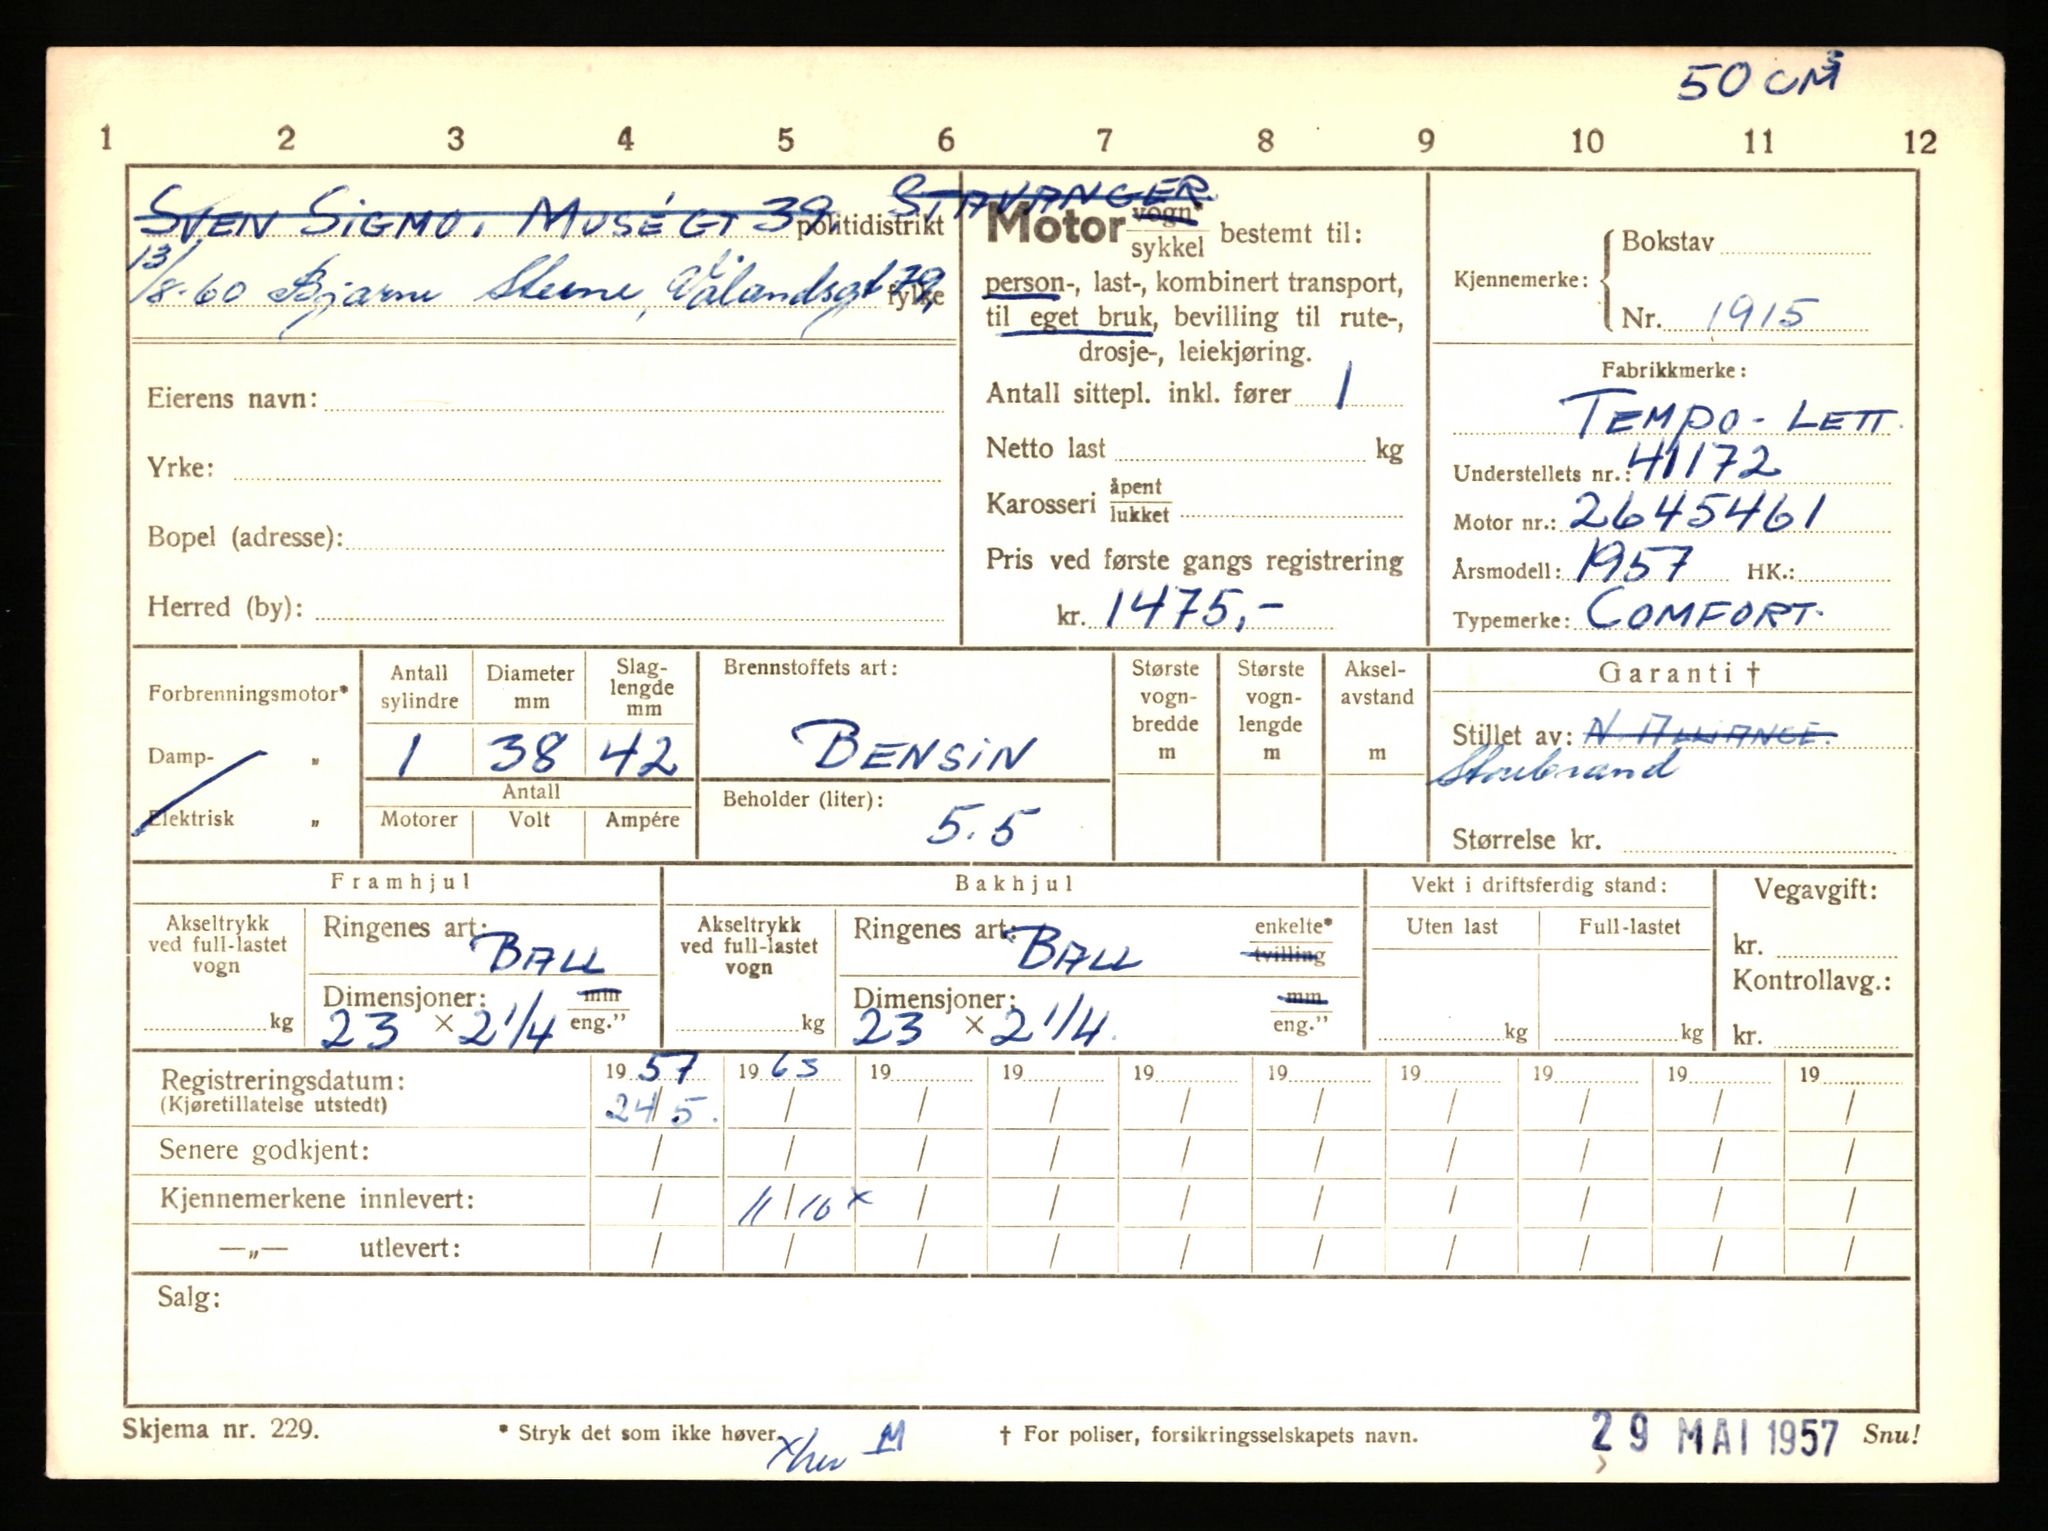 50 cm³
1 2 3 4 5 6 7 8 9 10 11 12
SVEN SIGMO, MUSÉGT 39. STAVANGER.
politidistrikt
13/8-60 Bjarne Steene, Vålandsgt 79,
fylke
Eierens navn:
Yrke:
Bopel (adresse):
Herred (by):
Motor vogn* sykkel bestemt til:
person-, last-, kombinert transport,
til eget bruk, bevilling til rute-,
drosje-, leiekjøring.
Antall sittepl. inkl. fører 1
Netto last kg
Karosseri åpent lukket
Pris ved første gangs registrering
kr. 1475,-
Kjennemerke: Bokstav
Nr. 1915
Fabrikkmerke:
TEMPO - LETT.
Understellets nr.: 41172
Motor nr.: 2645461
Årsmodell: 1957 HK.:
Typemerke: COMFORT.
Forbrenningsmotor*
Damp- „
Elektrisk „
Antall sylindre
Diameter mm
Slag-lengde mm
1 38 42
Antall
Motorer Volt Ampére
Brennstoffets art:
BENSIN
Beholder (liter):
5.5
Største vogn-bredde m
Største vogn-lengde m
Aksel-avstand m
Garanti †
Stillet av: N. ALLIANCE.
Storebrand
Størrelse kr.
Framhjul
Akseltrykk ved full-lastet vogn
kg
Ringenes art: BALL
Dimensjoner: mm eng.”
23 × 2 1/4
Bakhjul
Akseltrykk ved full-lastet vogn
kg
Ringenes art: BALL enkelte* tvilling
Dimensjoner: mm eng.”
23 × 2 1/4.
Vekt i driftsferdig stand:
Uten last Full-lastet
kg kg
Vegavgift:
kr.
Kontrollavg.:
kr.
Registreringsdatum: 1957 1963 19 19 19 19 19 19 19 19
(Kjøretillatelse utstedt) 24/5. / / / / / / / / /
Senere godkjent: / / / / / / / / / /
Kjennemerkene innlevert: / 11/10 x / / / / / / / /
—„— utlevert: / / / / / / / / / /
Salg:
Skjema nr. 229. * Stryk det som ikke høver. † For poliser, forsikringsselskapets navn. 29 MAI 1957 Snu!
M